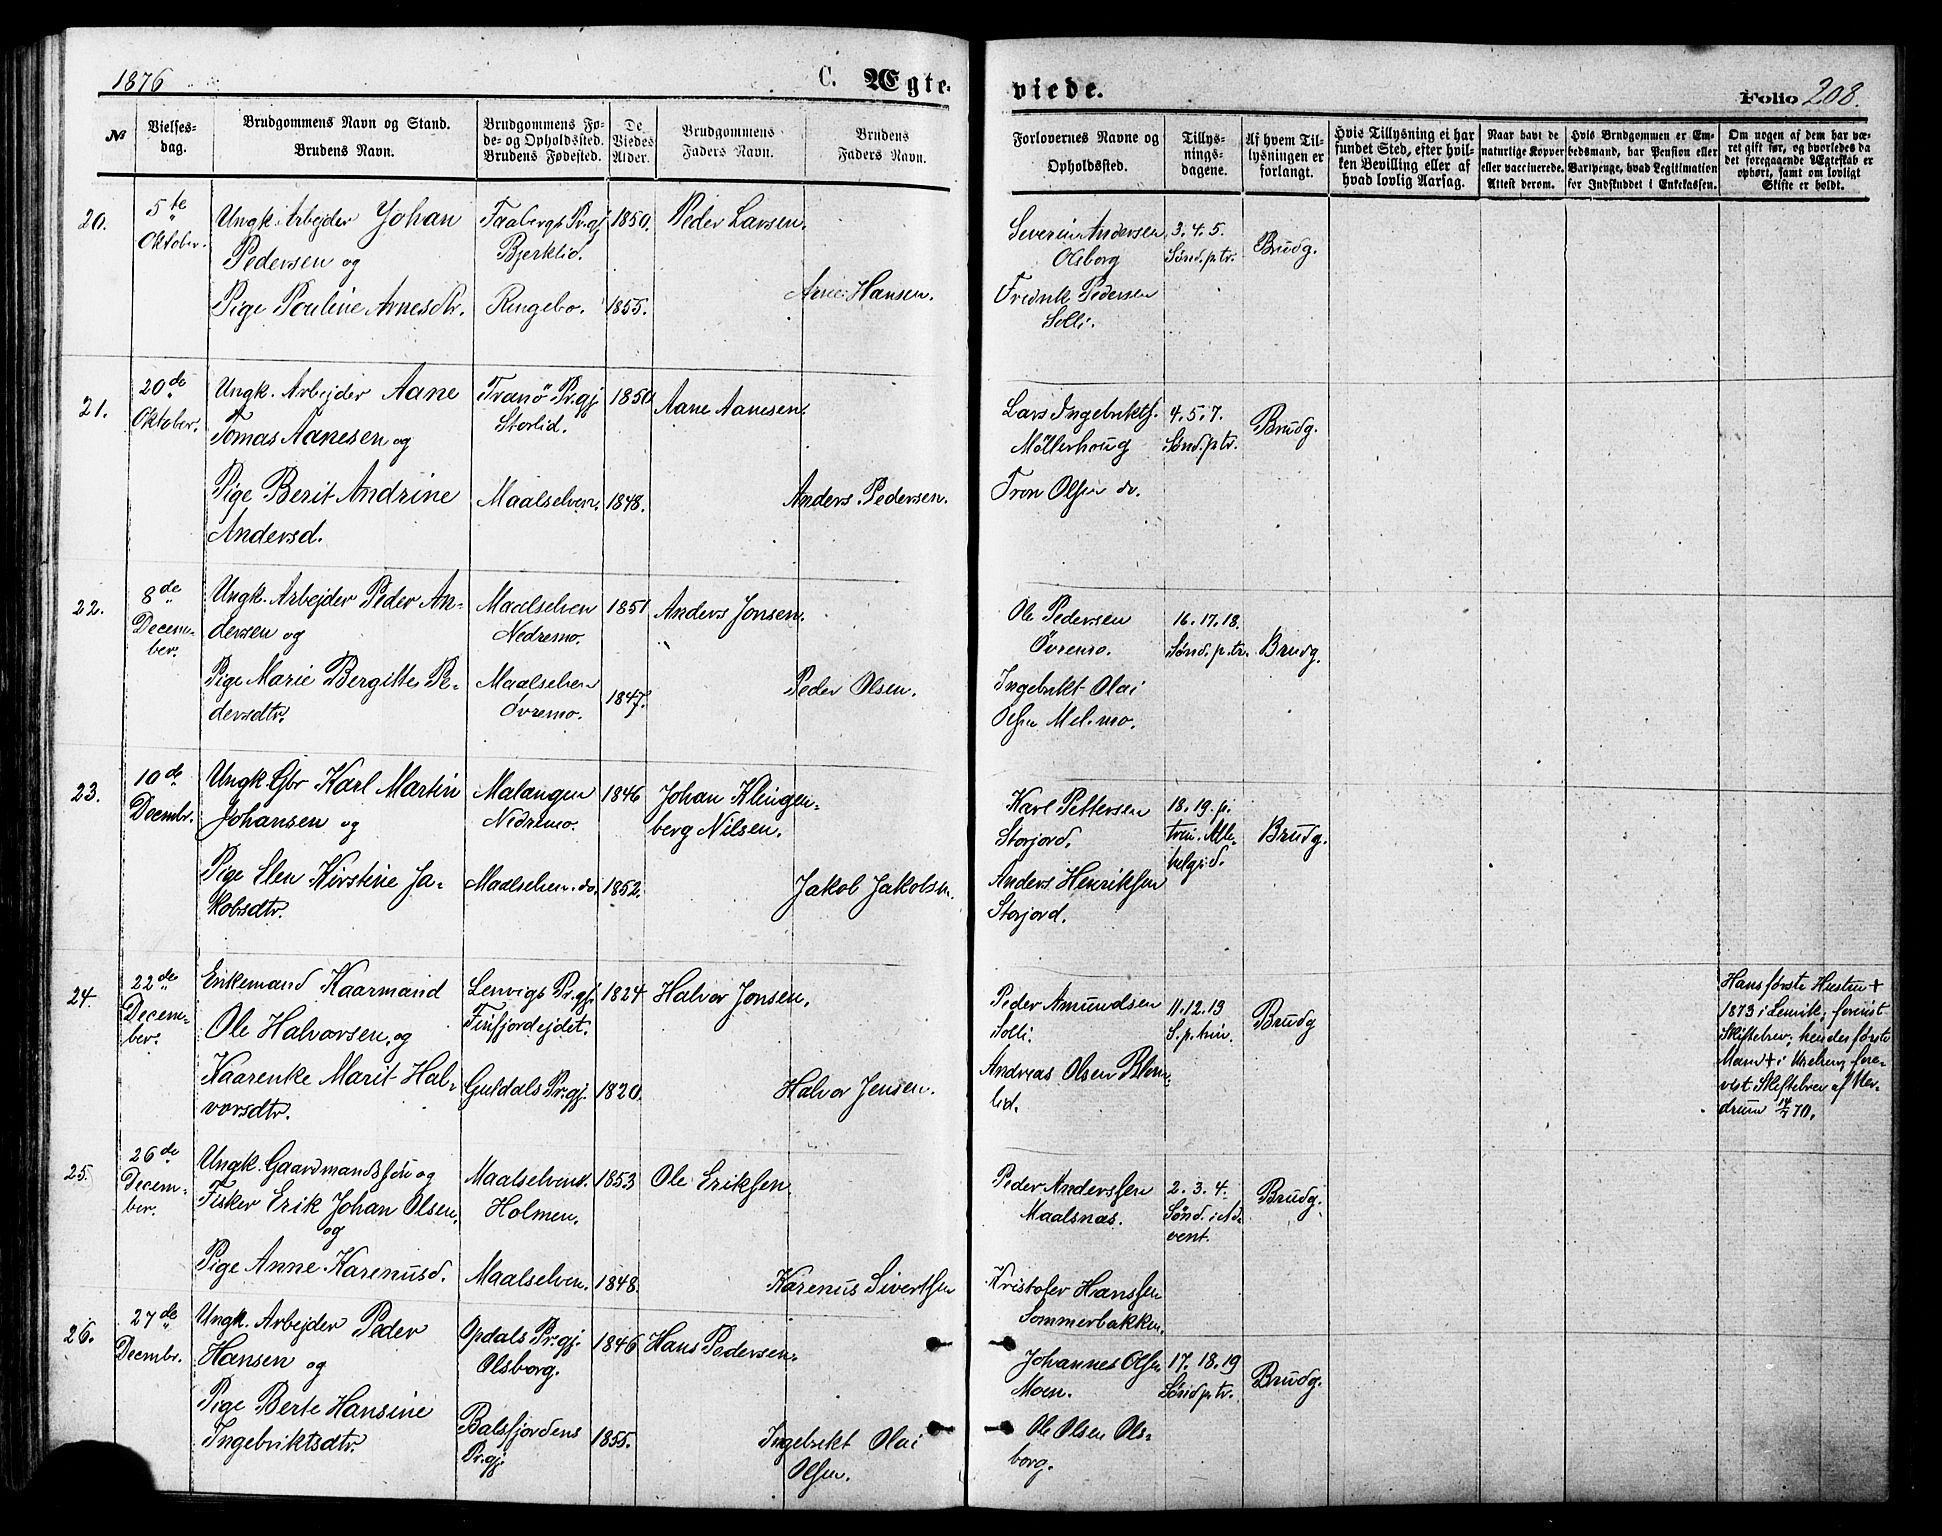 1876
C. Ægte-
viede.
Folio 208.
№
Vielses-
dag.
Brudgommens Navn og Stand.
Brudens Navn.
Brudgommens Fø-
de- og Opholdssted.
Brudens Fødested.
De
Viedes
Alder.
Brudgommens
Faders Navn.
Brudens
Faders Navn.
Forlovernes Navne og
Opholdssted.
Tillys-
nings-
dagene.
Af hvem Til-
lysningen er
forlangt.
Hvis Tillysning ei har
fundet Sted, efter hvil-
ken Bevilling eller af
hvad lovlig Aarsag.
Naar havt de
naturlige Kopper
eller vaccinerede.
Attest derom.
Hvis Brudgommen er Em-
bedsmand, har Pension eller
Vartpenge, hvad Legitimation
for Indskuddet i Enkekassen.
Om nogen af dem har væ-
ret gift før, og hvorledes da
det foregaaende Ægteskab er
ophørt, samt om lovligt
Skifte er holdt.
20.
5te
Oktober.
Ungk. Arbejder Johan
Pedersen og
Pige Pouline Arnesdtr.
Faabergs Pr.gj.
Bjerklid.
Ringebo.
1850.
1855.
Peder Larsen.
Arne Hansen.
Severin Andersen
Olsborg
Fredrik Pedersen
Solli.
3. 4. 5.
Sønd. p. tr.
Brudg.
21.
20de
Oktober.
Ungk. Arbejder Aane
Tomas Aanesen og
Pige Berit Andrine
Andersd.
Tranö Pr.gj.
Storlid.
Maalselven.
1850.
1848.
Aane Aanesen.
Anders Pedersen.
Lars Ingebrikts.
Möllerhoug
Tron Olsen do.
4. 5. 7.
Sønd. p. tr.
Brudg.
22.
8de
Decem-
ber.
Ungk. Arbejder Peder An-
dersen og
Pige Marie Bergitte Pe-
dersdtr.
Maalselven
Nedremo.
Maalselven
Övremo.
1851
1847.
Anders Jonsen.
Peder Olsen.
Ole Pedersen
Övremo.
Ingebrikt Olai
Olsen Melmo.
16. 17. 18.
Sønd. p. tr.
Brudg.
23.
10de
Decembr.
Ungk. Gbr Karl Martin
Johansen og
Pige Elen Kirstine Ja-
kobsdtr.
Malangen
Nedremo.
Maalselven. do.
1846
1852.
Johan Klingen-
berg Nilsen.
Jakob Jakobsen.
Karl Pettersen
Storjord.
Anders Henriksen
Storjord.
18. 19. p.
trin. Alle-
helgsd.
Brudg.
24.
22de
Decem-
ber.
Enkemand Kaarmand
Ole Halvorsen, og
Kaarenke Marit Hal-
vorsdtr.
Lenvigs Pr.gj.
Finfjordejdet.
Guldals Pr.gj.
1824
1820.
Halvor Jonsen.
Halvor Jensen.
Peder Amundsen
Solli.
Andreas Olsen
lid.
11. 12. 13
S. p. trin.
Brudg
Hans første Hustru †
1873 i Lenvik; forevist
Skiftebrev; hendes første
Mand † i; fore-
vist Skiftebrev af
drum 14/7 70.
25.
26de
Decem-
ber.
Ungk. Gaardmandssön og
Fisker Erik Johan Olsen,
og
Pige Anne Karenusd.
Maalselvens.
Holmen.
Maalselven.
1853
1848.
Ole Eriksen.
Karenus Sivertsen
Peder Anderssen
Maalsnæs.
Kristofer Hanssen
Sommerbakken.
2. 3. 4.
Sønd. i Ad-
vent.
Brudg.
26.
27de
Decembr.
Ungk. Arbejder Peder
Hansen og
Pige Berte Hansine
Ingebriktsdtr.
Opdals Pr.gj.
Olsborg.
Balsfjordens
Pr.gj.
1846
1855.
Hans Pedersen.
Ingebrikt Olai
Olsen.
Johannes Olsen
Moen.
Ole Olsen Ols-
borg.
17. 18. 19
Sønd p. tr.
Brudg.